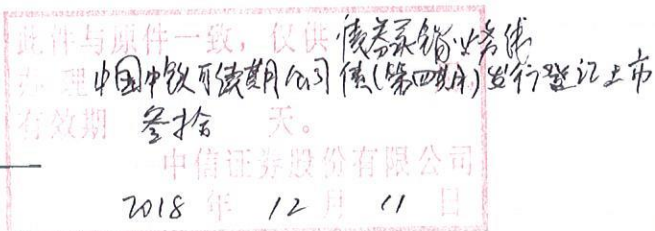 此件与原件一致，仅供债券承销业务线
办理中国中铁可续期公司债(第四期)发行登记上市
有效期 叁拾 天。
中信证券股份有限公司
2018 年 12 月 11 日